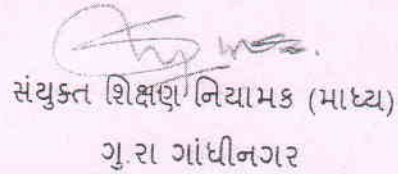 સંયુક્ત શિક્ષણ નિયામક (માધ્ય)
ગુ.રા ગાંધીનગર